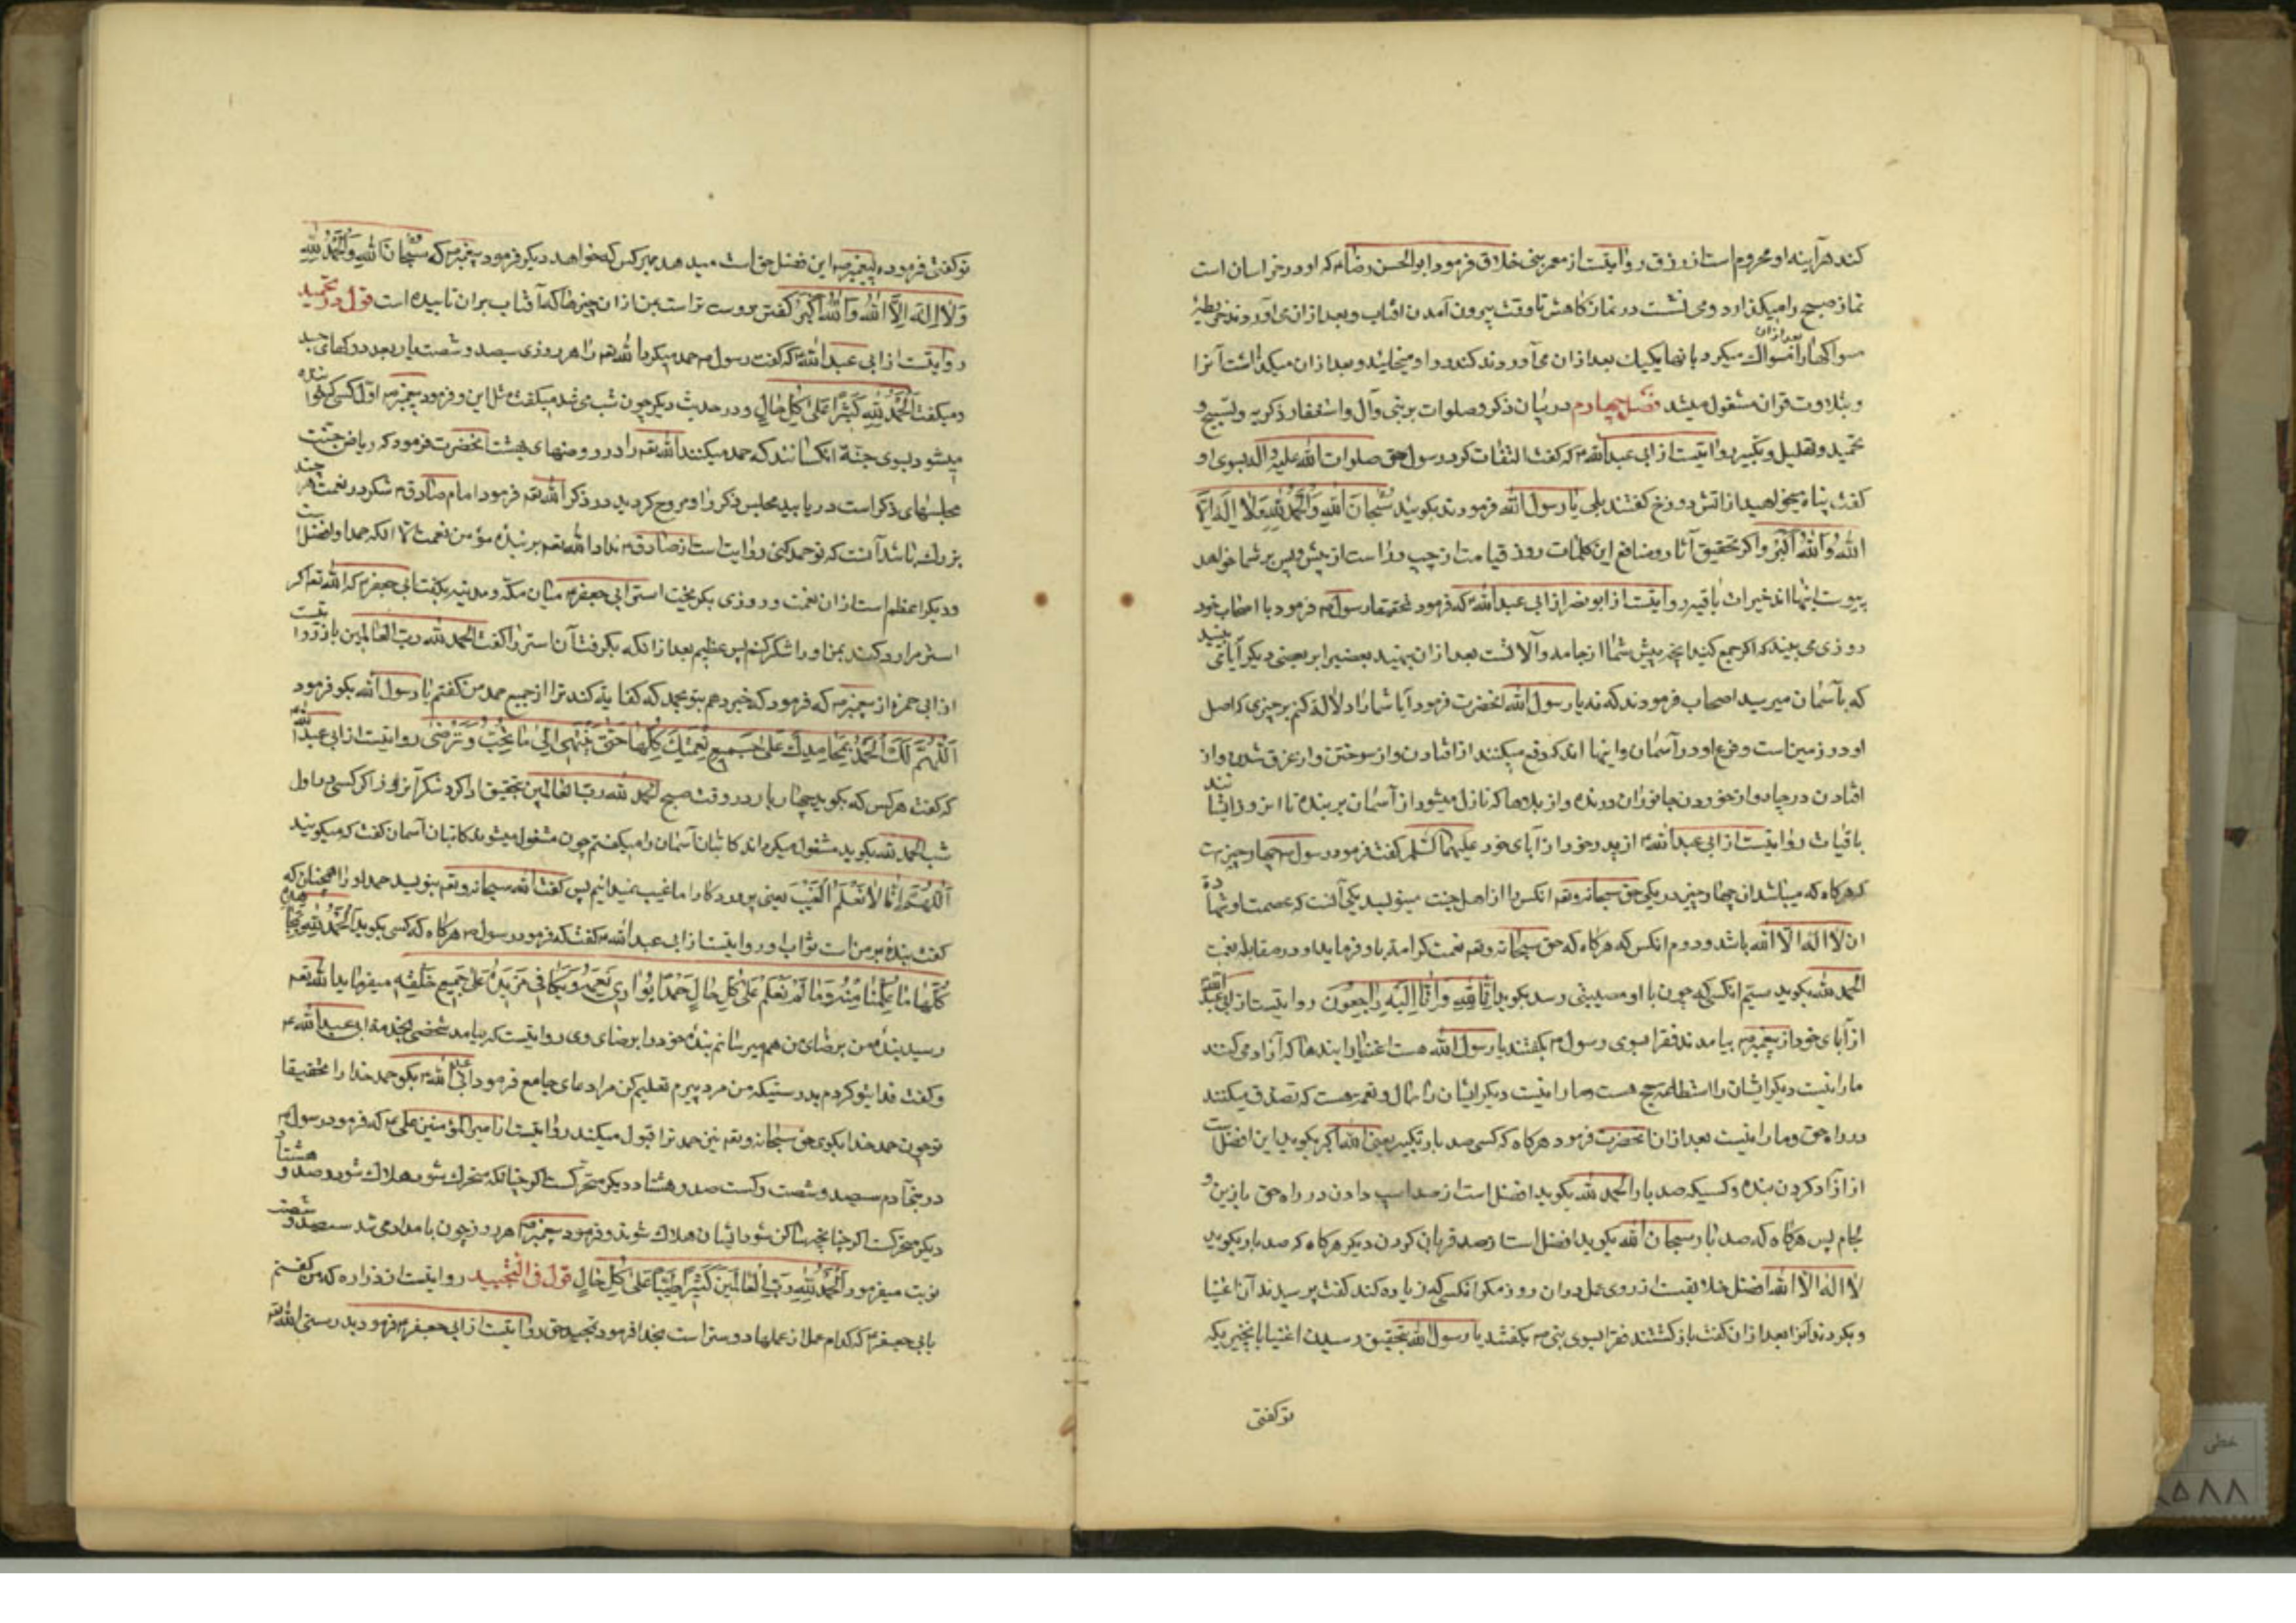 کند هرآینه او محروم است از رزق روایتست از معمر بن خلاد فرمود ابوالحسن رضا ۴ که او در خراسان است
نماز صبح را میکذارد و می نشست در نماز کاهش تا وقت بیرون آمدن افتاب و بعد از ان می آوردند خریطهٔ
مسواکها را مسواک میکرد بانها یکیک بعد از ان می آوردند کندر و او میخایید و بعد از ان میکذاشت آنرا
بعد از ان
و بتلاوت قران مشغول میشد فصل چهارم در بیان ذکر و صلوات بر نبی و آل و استغفار ذکریه و تسبیح و
تحمید و تهلیل و تکبیر روایتست از ابی عبدالله ۴ که کفت التفات کرد رسول حق صلوات الله علیه واله بسوی او
کفت پناه میخواهید از اتش دوزخ کفتند بلی یا رسول الله فرمودند بکویید سُبْحَانَ اللهِ وَالْحَمْدُ لِلّهِ وَلَا اِلَهَ اِلَّا
اللهُ وَاللهُ اَکْبَرُ و اکر تحقیق آثار و منافع این کلمات روز قیامت از چپ و راست از پیش و پس بر شما خواهد
پیوست اینها اند خیرات باقیه روایتست از ابو بصیر از ابی عبدالله ۴ که فرمود رسول ۴ فرمود با اصحاب خود
روزی می بینید که اکر جمع کنید انچه پیش شما از جامه و آلاتست بعد از ان بنهید بعضی را بر بعضی دیکر آیا می بینید
که بآسمان میرسد اصحاب فرمودند که نه یا رسول الله انحضرت فرمود آیا شما را دلالة کنم بر چیزی که اصل
او در زمین است و فرع او در آسمان و اینها اند که دفع میکنند از افتادن و از سوختن و از غرق شدن و از
افتادن در چاه و از خوردن جانوران درنده و از بلاها که نازل میشود از آسمان بر بنده تا این روز اینها
باقیات روایتست از ابی عبدالله ۴ از پدر خود از آبای خود علیهم السلم کفت فرمود رسول ۴ چهار چیز
که هرکاه که میباشد از چهار چیز در یکی حق سبحانه وتعه انکس را از اهل جنت مینویسد یکی آنست که عصمت او شهادة
ان لا اله الا الله باشد و دوم انکس که هرکاه که حق سبحانه وتعه نعمت کرامة باو فرماید او در مقابله نعمت
الحمد لله بکوید سیّم انکسی که چون باو مصیبتی رسد بکوید اِنَّا لِلّهِ وَاِنَّا اِلَیْهِ رَاجِعُونَ روایتست از ابی عبدالله
از آبای خود از پیغمبر ۴ بیامدند فقرا بسوی رسول ۴ بکفتند یا رسول الله هست اغنیا را بندها که آزاد می کنند
ما را نیست دیکر ایشان را استطاعة حج هست و ما را نیست دیکر ایشان را مال و نعمة هست که تصدق میکنند
در راه حق و ما را نیست بعد از ان انحضرت فرمود هرکاه که کسی صد بار تکبیر یعنی الله اکبر بکوید این افضل است
از آزاد کردن بنده و کسیکه صد بار الحمد لله بکوید افضل است از صد اسپ دادن در راه حق بازین و
لجام پس هرکاه که صد بار سبحان الله بکوید افضل است از صد قربانی کردن دیکر هرکاه که صد بار بکوید
لا اله الا الله افضل خلایقست از روی عمل در ان روز مکر انکسی که زیاده کند کفت پرسیدند آن اغنیا
و بکردند آنرا بعد از ان کفت بازکشتند فقرا بسوی نبی ۴ بکفتند یا رسول الله بتحقیق رسید اغنیا بانچیزیکه
توکفتی
توکفتی فرموده پیغمبر ۴ این فضل حق است میدهد بهر کس که خواهد دیکر فرمود پیغمبر ۴ که سُبْحَانَ اللهِ وَالْحَمْدُ لِلّهِ
وَلَا اِلَهَ اِلَّا اللهُ وَاللهُ اَکْبَرُ کفتن دوست تر است بمن از ان چیزها که آفتاب بر ان تابیده است قول در تحمید
روایتست از ابی عبدالله ۴ که کفت رسول ۴ حمد میکرد بالله تعه را هر روزی سیصد و شصت بار بعدد رکهای جسد
و میکفت اَلْحَمْدُ لِلّهِ کَثِیرًا عَلَیٰ کُلِّ حَالٍ و در حدیث دیکر چون شب می شد میکفت مثل این و فرمود پیغمبر ۴ اوّل کسی که خوانده
میشود بسوی جنّة انکسانند که حمد میکنند الله تعه را در روضهای بهشت انحضرت فرمود که ریاض جنّت
مجلسهای ذکر است دریابید مجلس ذکر را و مروح کردید در ذکر الله تعه فرمود امام صادق ۴ شکر در نعمت هر چند
بزرك باشد آنست که تو حمد کنی روایت است از صادق ۴ نداد الله تعه بر بندۀ مؤمن نعمت الا انکه حمد او افضل است
و دیکر اعظم است از ان نعمت و روزی بکریخت استر ابی جعفر ۴ میان مکّه و مدینه بکفت ابی جعفر ۴ که الله تعه اکر
استر مرا رد کند بمن او را شکر کنم پس عظیم بعد از انکه بکرفت آن استر را کفت الحمد لله رب العالمین باز روایتست
از ابی حمزه از پیغمبر ۴ که فرمود که خبر دهم بتو بحمد که کفایة کند ترا از جمیع حمد من کفتم یا رسول الله بکو فرمود
اَللّهُمَّ لَكَ الْحَمْدُ بِمَحَامِدِكَ عَلَیٰ جَمِیعِ نِعَمِكَ کُلِّهَا حَتَّیٰ یَنْتَهِیَ اِلَیٰ مَا تُحِبُّ وَتَرْضَیٰ روایتست از ابی عبدالله
که کفت هرکس که بکوید چهار بار در وقت صبح الحمد لله رب العالمین بتحقیق ادا کرد شکر آن روز اکر کسی در اول
شب الحمد لله بکوید مشغول میکرداند کاتبان آسمان را میکفتم چون مشغول میشوند کاتبان آسمان کفت که میکویند
اَللّهُمَّ اِنَّا لَا نَعْلَمُ الْغَیْبَ یعنی پروردکارا ما غیب نمیدانیم پس کفت الله سبحانه وتعه بنویسید حمد او را همچنان که
کفت بندۀ بر من است ثواب او روایتست از ابی عبدالله ۴ کفت که فرمود رسول ۴ هرکاه که کسی بکوید اَلْحَمْدُ لِلّهِ بِمَحَامِدِهِ
کُلِّهَا مَا عَلِمْنَا مِنْهُ وَمَا لَمْ نَعْلَمْ عَلَیٰ کُلِّ حَالٍ حَمْدًا یُوَازِی نِعَمَهُ وَیُکَافِی مَزِیدَهُ عَلَیٰ جَمِیعِ خَلْقِهِ میفرماید الله تعه
رسید بندۀ من برضای من هم میرسانم بندۀ خود را برضای وی روایتست که بیامد شخصی بخدمة ابی عبدالله ۴
و کفت فدایتو کردم بدرستیکه من مرد پیرم تعلیم کن مرا دعای جامع فرمود ابی عبدالله ۴ بکو حمد خدا را بتحقیق
تو چون حمد خدا بکوی حق سبحانه وتعه نیز حمد ترا قبول میکند روایتست از امیرالمؤمنین علی ۴ که فرمود رسول ۴
در بنی آدم سیصد و شصت رکست صد و هشتاد دیکر متحرکست اکر چنانکه متحرك شود هلاك شود و صد و هشتاد
دیکر متحرکست اکر چنانچه ساکن شود ایشان هلاك شوند و فرمود پیغمبر ۴ هر روز چون بامداد می شد سیصد و شصت
نوبت میفرمود اَلْحَمْدُ لِلّهِ رَبِّ الْعَالَمِینَ کَثِیرًا طَیِّبًا عَلَیٰ کُلِّ حَالٍ قول فی التمجید روایتست از زراره که من کفتم
بابی جعفر ۴ که کدام عمل از عملها دوستر است بخدا فرمود تمجید حق روایتست از ابی جعفر ۴ فرمود بدرستی الله تعه
خطی
۵۸۸